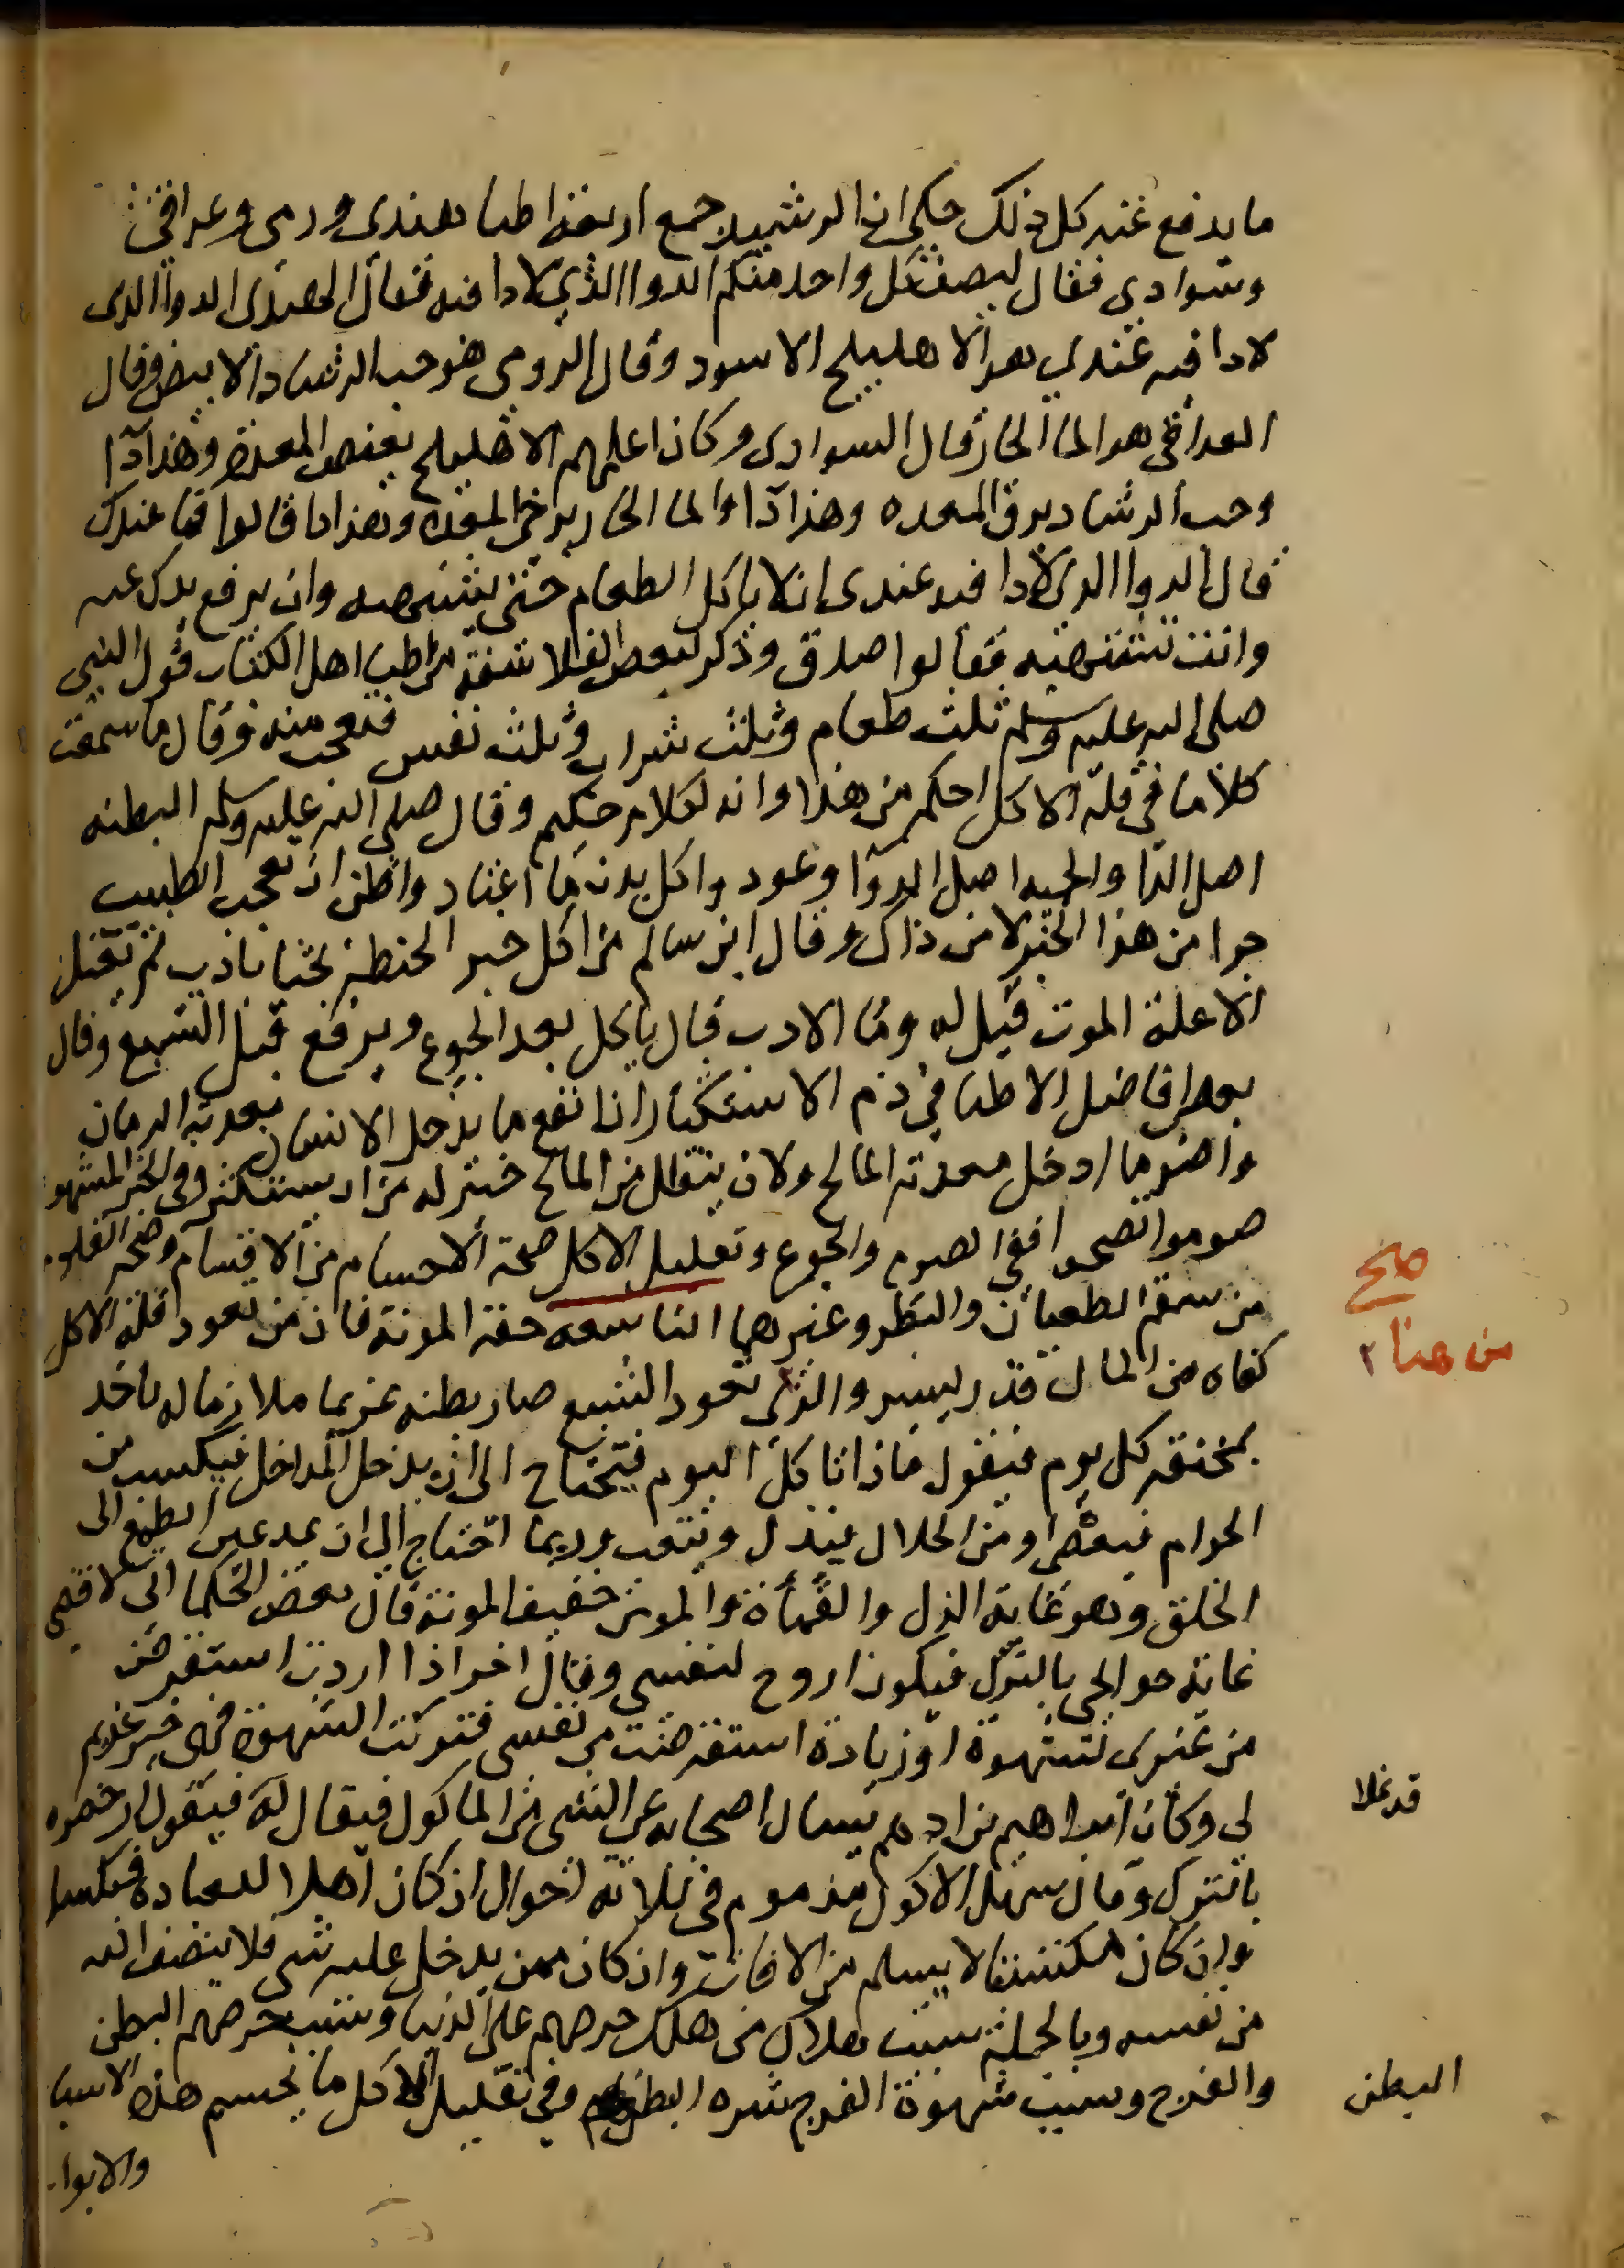 ما يدفع عنه كل ذلك حكي ان الرشيد جمع اربعة اطبا هندي ورومي وعراقي
وسوادي فقال ليصف كل واحد منكم الدوا الذي لا دا فيه فقال الهندي الدوا الذي
لا دا فيه عندي هو الاهليلج الاسود وقال الرومي هو حب الرشاد الابيض وقال
العراقي هو الما الحار وقال السوادي وكان اعلمهم الاهليلج يعفص المعدة وهذا دآ
وحب الرشاد يرق المعده وهذا دآ والما الحار يرخي المعدة وهذا دا قالوا فما عندك
قال الدوا الذي لا دا فيه عندي ان لا ياكل الطعام حتى يشتهيه وان يرفع يدك عنه
وانت تشتهيه فقالوا صدق وذكر لبعض الفلاسفة من اطبا اهل الكتاب قول النبي
صلى الله عليه وسلم ثلث طعام وثلث شراب وثلث نفس فتعجب منه وقال ما سمعت
كلاما في قلة الاكل احكم من هذا وانه لكلام حكيم وقال صلى الله عليه وسلم البطنه
اصل الدا والحميه اصل الدوآ وعود واكل بدن ما اعتاد واظن ان تعجب الطبيب
جرا من هذا الخبر لا من ذاك وقال ابن سالم من اكل خبز الحنطة بحتا بادب لم يعتل
الا علة الموت قيل له وما الادب قال ياكل بعد الجوع ويرفع قبل الشبع وقال
بعض افاضل الاطبا في ذم الاستكثار ان انفع ما يدخل الانسان معدته الرمان
واضر ما ادخل معدته المالح ولان يتقلل من المالح خير له من ان يستكثر وفي الخبر المشهور
صوموا تصحوا ففي الصوم والجوع وتقليل الاكل صحة الاجسام من الاقسام وصحة القلوب
من سقم الطغيان والبطر وغيرهما التاسعه خفة المونة فان من تعود قلة الاكل
كفاه من المال قدر يسير والذي تعود الشبع صار بطنه غريما ملازما له ياخذ
بمخنقه كل يوم فيقول ماذا تاكل اليوم فيحتاج الى ان يدخل المداخل فيكسب من
الحرام فيعصى او من الحلال فيذل ويتعب وربما احتاج الي ان يمد عين الطمع الى
الخلق وهو غاية الذل والقمأة والمومن خفيف المونة قال بعض الحكما اني لاقضي
عامة حوايجي بالترك فيكون اروح لنفسي وقال اخر اذا اردت استقرض
من غيري لشهوة او زيادة استقرضت من نفسي فتركت الشهوة فهي خير غريم
لي وكان ابراهيم بن ادهم يسال اصحابه عن الشي من الماكول فيقال له فيقول ارخصوه
بالترك وقال سهل الاكول مذموم في ثلاثه احوال ان كان اهلا للعبادة فيكسل
وان كان مكتسبا لا يسلم من الافات وان كان ممن يدخل عليه شي فلا ينصف الله
من نفسه وبالجملة سبب هلاك من هلك حرصهم على الدنيا وسبب حرصهم البطن
والفرج وسبب شهوة الفرج شره البطن وفي تقليل الاكل ما يحسم هذه الاسبا
والابواب
صح
من هنا ٢
قد غلا
البطن